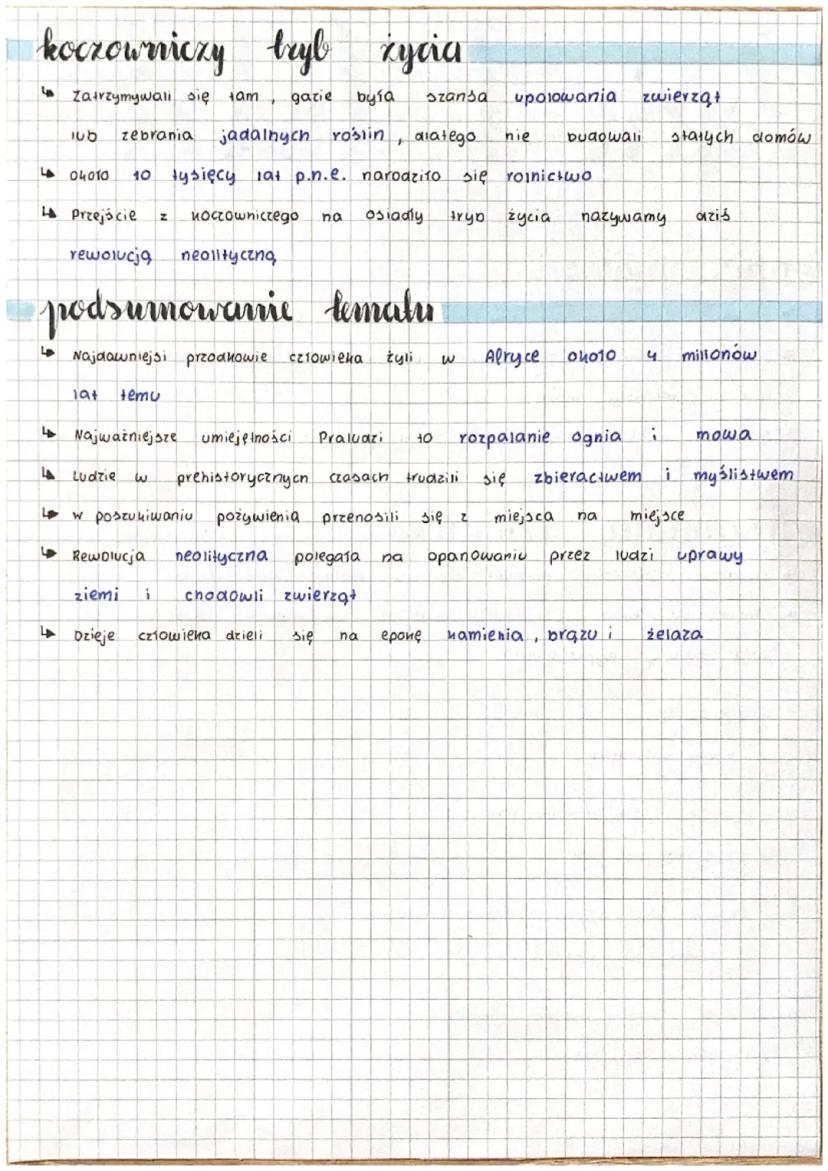 koczowniczy tryb życia
↳ Zatrzymywali się tam, gdzie była szansa upolowania zwierząt
lub zebrania jadalnych roślin, dlatego nie budowali stałych domów
↳ około 10 tysięcy lat p.n.e. narodziło się rolnictwo
↳ Przejście z koczowniczego na osiadły tryb życia nazywamy dziś
rewolucją neolityczną
podsumowanie tematu
↳ Najdawniejsi przodkowie człowieka żyli w Afryce około 4 milionów
lat temu
↳ Najważniejsze umiejętności Praludzi to rozpalanie ognia i mowa
↳ Ludzie w prehistorycznych czasach trudzili się zbieractwem i myślistwem
↳ w poszukiwaniu pożywienia przenosili się z miejsca na miejsce
↳ Rewolucja neolityczna polegała na opanowaniu przez ludzi uprawy
ziemi i chodowli zwierząt
↳ Dzieje człowieka dzieli się na epokę kamienia, brązu i żelaza